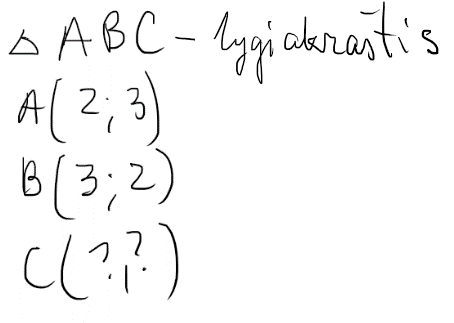 △ ABC - lygiakraštis
A(2;3)
B(3;2)
C(?;?)